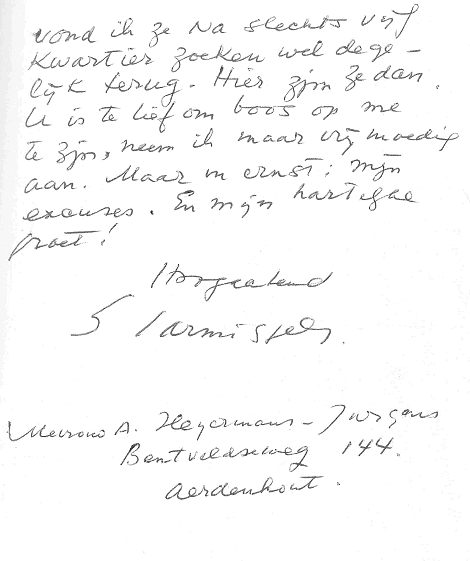 vond ik ze Na slechts vijf
kwartier zoeken wel dege-
lijk terug. Hier zijn ze dan.
U is te lief om boos op me
te zijn, neem ik maar vrijmoedig
aan. Maar in ernst: mijn
excuses. En mijn hartelijke
groet!
Hoogachtend
S Carmiggelt.
Mevrouw A. Heyermans-Jurgens
Bentveldseweg 144.
Aerdenhout.